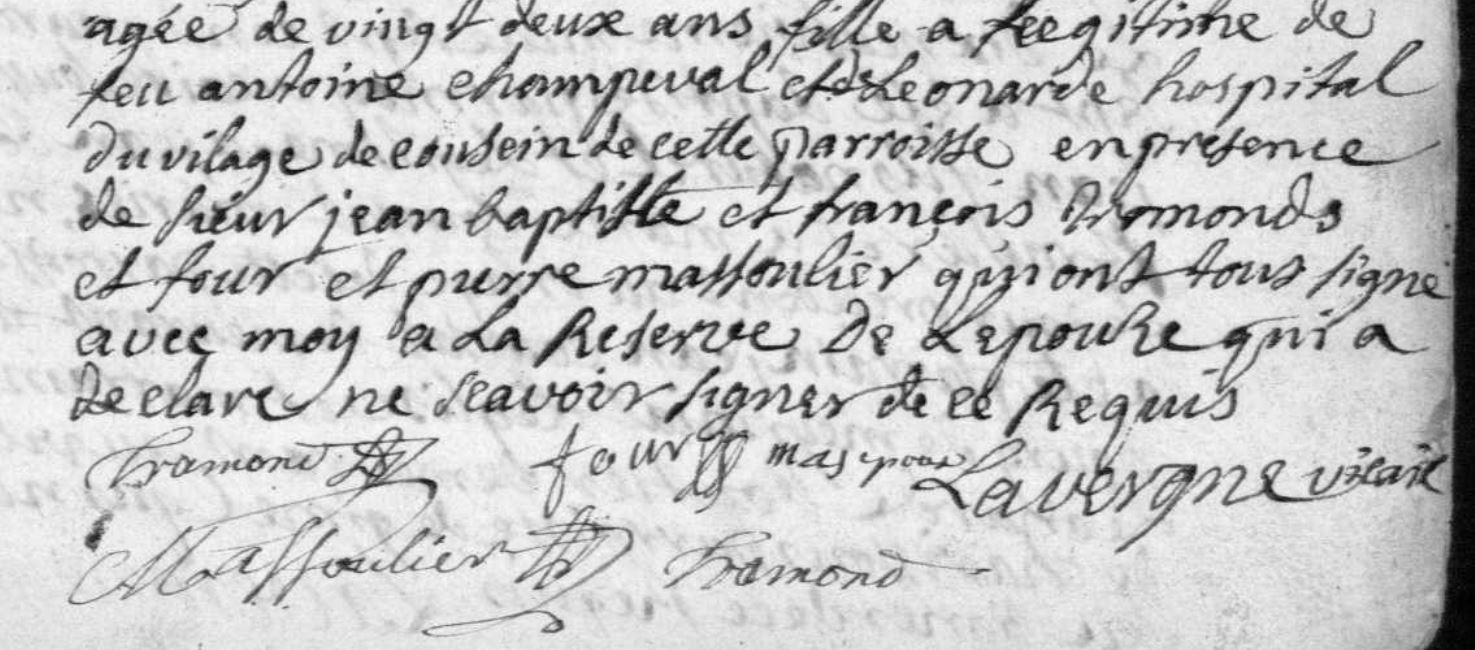 agée de vingt deux ans fille a leegitime de
feu antoine champeval et de Leonarde hospital
du vilage de cousein de cette parroisse en presence
de sieur jean baptiste et françois tramonds
et four et pierre massoulier qui ont tous signé
avec moy a La Reserve De Lepouse qui a
declare ne scavoir signer de ce Requis
tramond four Lavergne vicaire
Massoulier tramond